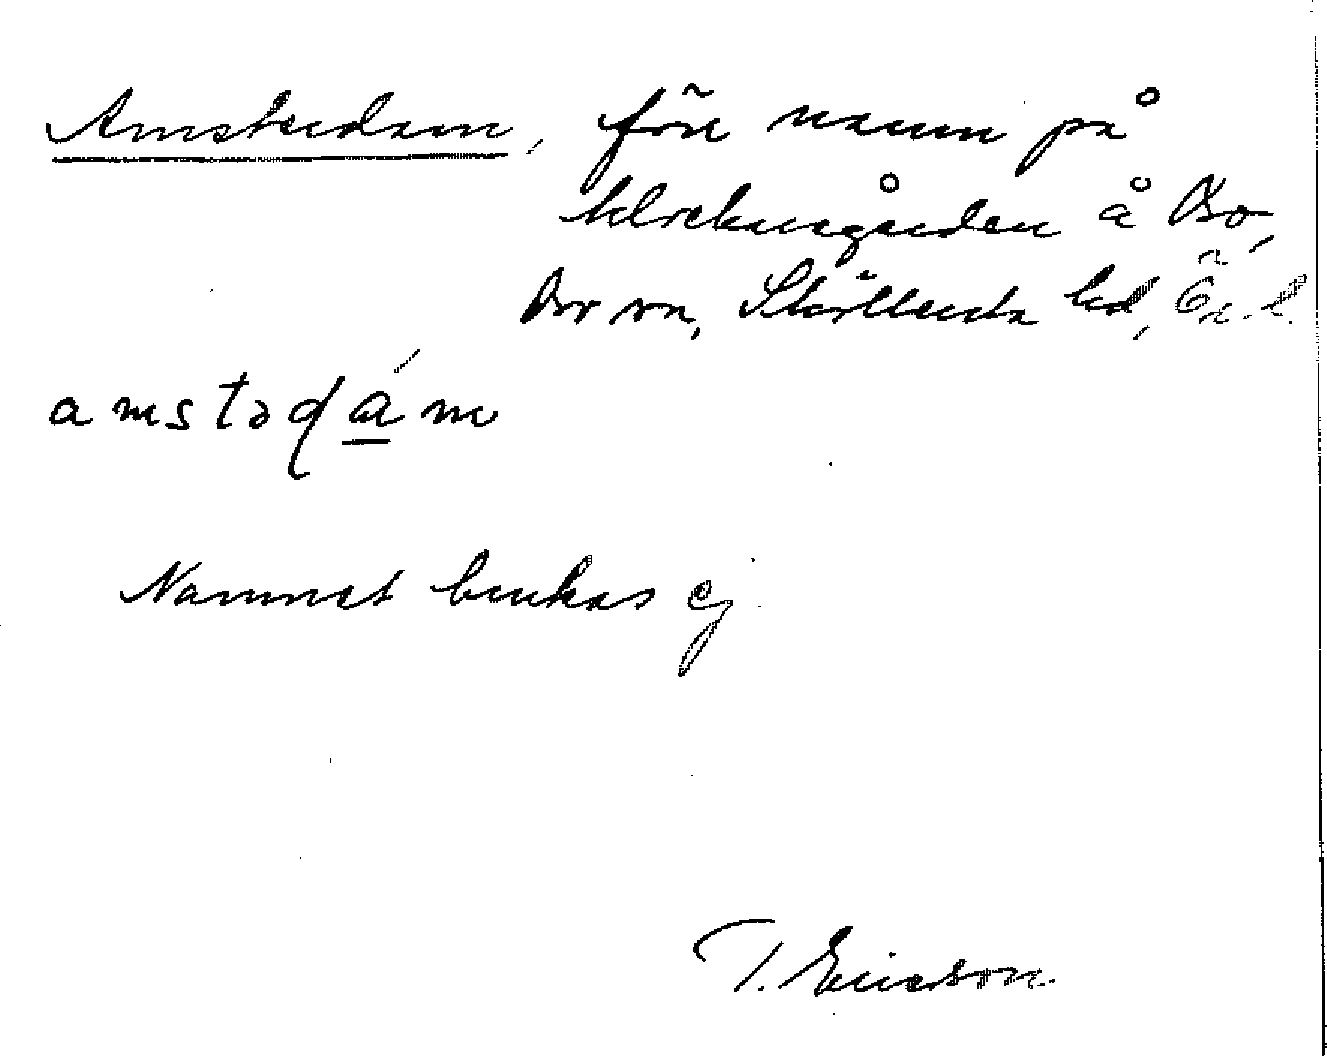 Amsterdam, förr namn på
klockaregården å Bo,
Bo sn, Sköllersta hd, Ör. l.
amstədám
Namnet brukas ej.
T. Ericson.